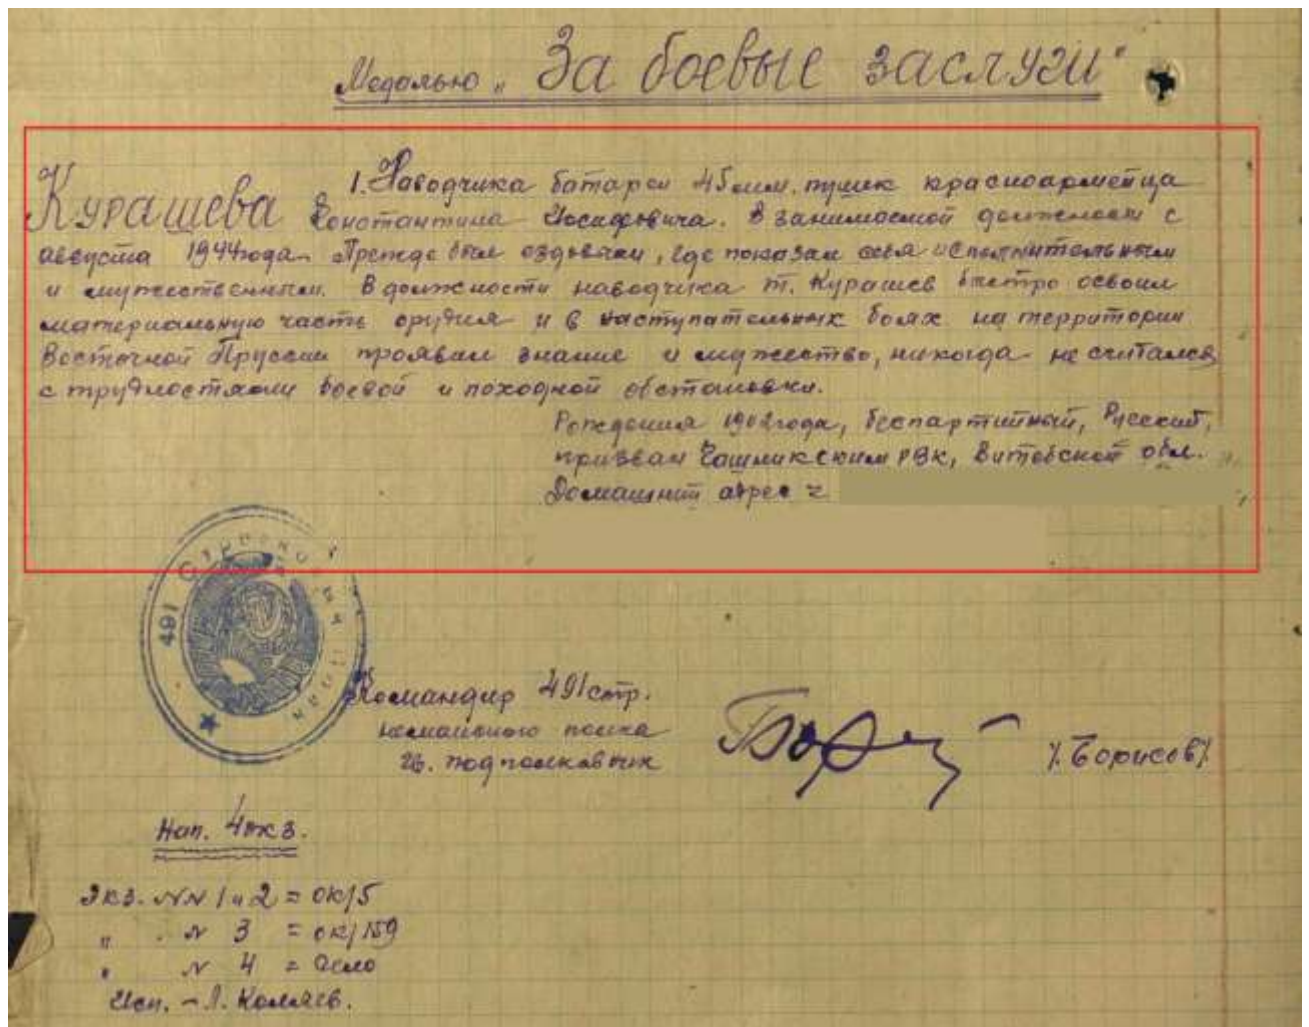 Медалью „За боевые заслуги"
1. Наводчика батареи 45 мм. пушек красноармейца
Курашева Константина Иосифовича. В занимаемой должности с
августа 1944 года. Прежде был ездовым, где показал себя исполнительным
и мужественным. В должности наводчика т. Курашев быстро освоил
материальную часть орудия и в наступательных боях на территории
Восточной Пруссии проявил знание и мужество, никогда не считался
с трудностями боевой и походной обстановки.
Рождения 1902 года, беспартийный, Русский,
призван Чашникским РВК, Витебской обл.
Домашний адрес
491 Стрелковый
Командир 491 стр.
полка
подполковник
/.Борисов/.
Нап. 4 экз.
Экз. NN 1 и 2 = ОК/5
" . N 3 = ОК/159
" N 4 = дело
Исп. –